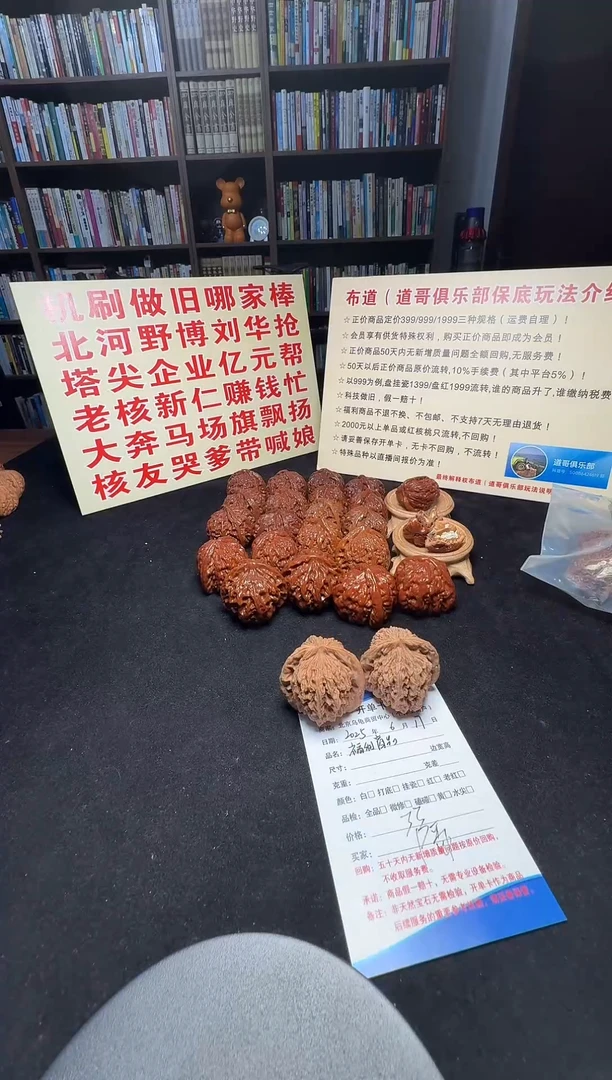 机刷做旧哪家棒
北河野博刘华抢
塔尖企业亿元帮
老核新仁赚钱忙
大奔马场旗飘扬
核友哭爹带喊娘
布道（道哥俱乐部保底玩法介绍
☆正价商品定价399/999/1999三种规格（运费自理）！
☆会员享有供货特殊权利，购买正价商品即成为会员！
☆正价商品50天内无新增质量问题全额回购,无服务费！
☆50天以后正价商品原价流转,10%手续费（其中平台5%）！
☆以999为例,盘挂瓷1399/盘红1999流转,谁的商品升了,谁缴纳税费
☆科技做旧，假一赔十！
☆福利商品不退不换、不包邮、不支持7天无理由退货！
☆2000元以上单品或红核桃只流转,不回购！
☆请妥善保存开单卡，无卡不回购，不流转！
☆特殊品种以直播间报价为准！
最终解释权布道（道哥俱乐部玩法说明
道哥俱乐部
开单卡
北京乌龟商贸中心
日期：2025 年 6 月 11 日
品名：福利
边宽高
尺寸：
克重： 克差
颜色：白□ 打底□ 挂瓷□ 红□ 老红□
品检：全品□ 微修□ 磕碰□ 黄□ 水尖□
价格：
买家：
回购：五十天内无新增质量问题按原价回购，
不收取服务费。
承诺：商品假一赔十，无需专业设备检验。
备注：非天然宝石无需检验，开单卡作为商品
后续服务的重要参考